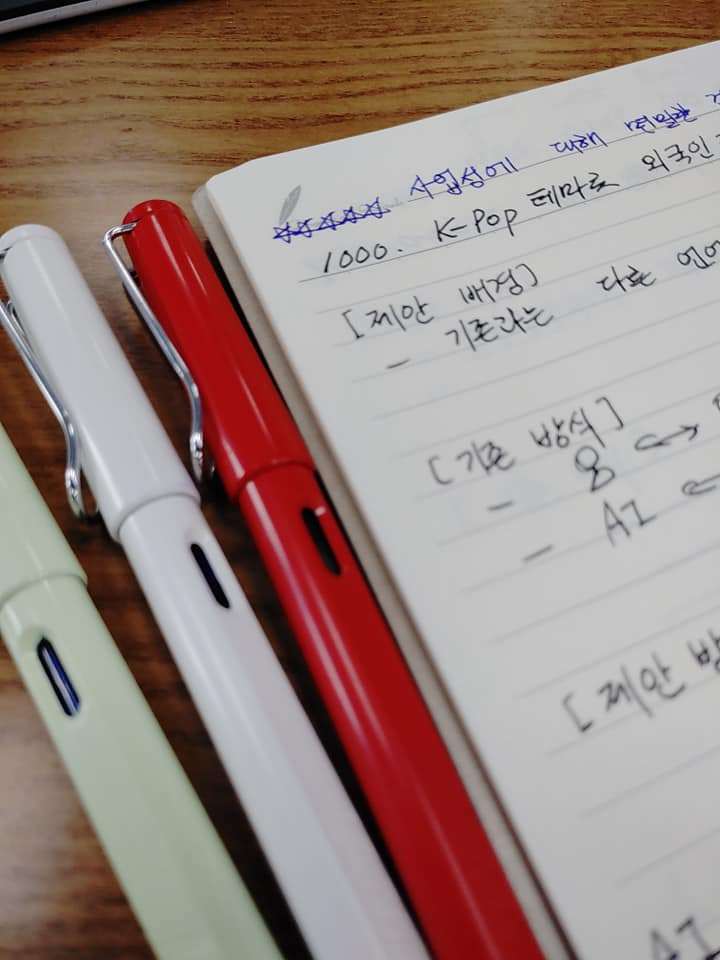 ☆☆☆☆☆ 사업성에 대해 면밀한
1000. K-Pop 테마로 외국인
[제안 배경]
- 기존과는 다른 언어
[기존 방식]
- 옹 <->
- AI <-
[제안 방
AI